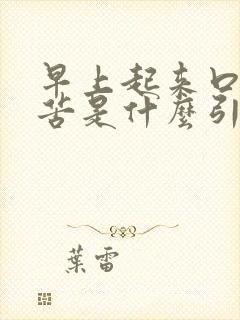 早上起来口
苦是什麼引
葉雷